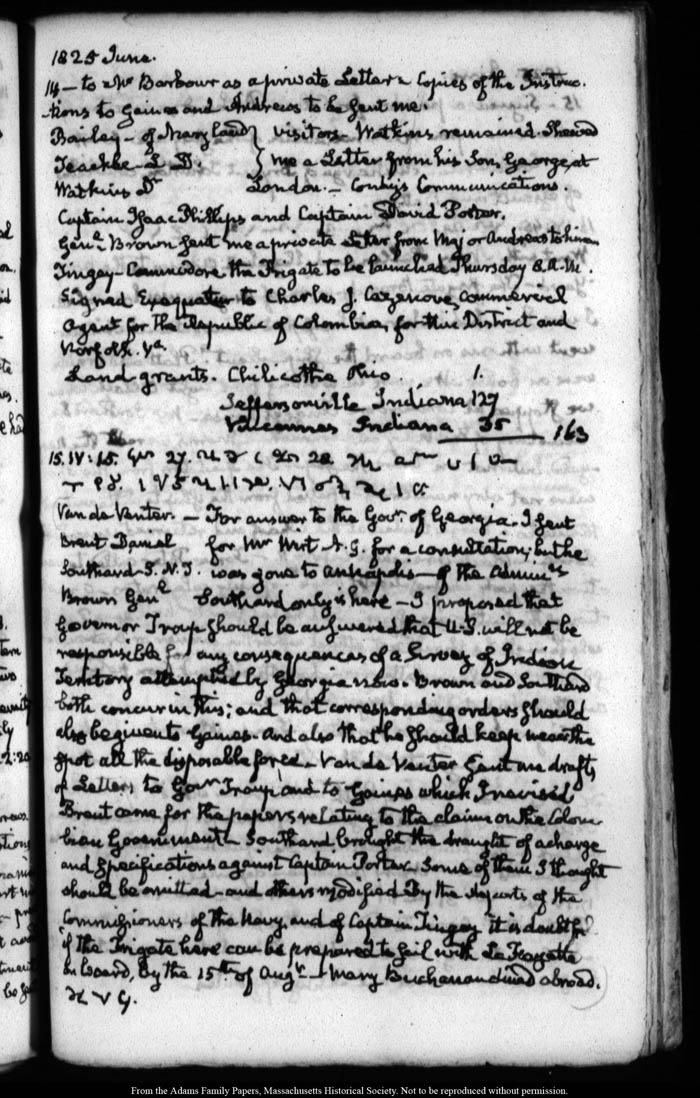 1825 June.
14 — to Mr Barbour as a private Letter & Copies of the Instruc-
tions to Gaines and Andrews to be sent me.
Bailey — of Maryland } visitors — Watkins remained. Shewed
Teackle L. D. } me a Letter from his Son, George, at
Watkins Dr London. — Conky's Communications.
Captain Isaac Phillips and Captain David Porter.
Genl Brown sent me a private Letter from Major Andrews to him
Tingey — Commodore the Frigate to be launched Thursday 8. A.M.
Signed Exequatur to Charles J. Cazenove, Commercial
Agent for the Republic of Colombia, for this District and
Norfolk. Va
Land grants. Chilicothe Ohio. 1.
Jeffersonville Indiana 127
Vincennes Indiana 35 163
15. IV: 15.
Van de Venter. — For answer to the Govr. of Georgia. I sent
Brent Daniel for Mr Wirt A. G. for a consultation; but he
Southard S. N. J. was gone to Annapolis — of the Adminn
Brown Genl Southard only is here — I proposed that
Governor Troup should be answered that U.S. will not be
responsible for any consequences of a Survey of Indian
Territory attempted by Georgia now. Brown and Southard
both concur in this; and that corresponding orders should
also be given to Gaines. And also that he should keep near the
spot all the disposable force. Van de Venter sent me drafts
of Letters to Govr Troup and to Gaines which I revised
Brent came for the papers relating to the claims on the Colom-
bian Government — Southard brought the draught of a charge
and specifications against Captain Porter. Some of them I thought
should be omitted — and others modified. By the Reports of the
Commissioners of the Navy, and of Captain Tingey it is doubtful
if the Frigate here can be prepared to sail with La Fayette
on board, by the 15th of Augt — Mary Buchanan dined abroad.
From the Adams Family Papers, Massachusetts Historical Society. Not to be reproduced without permission.